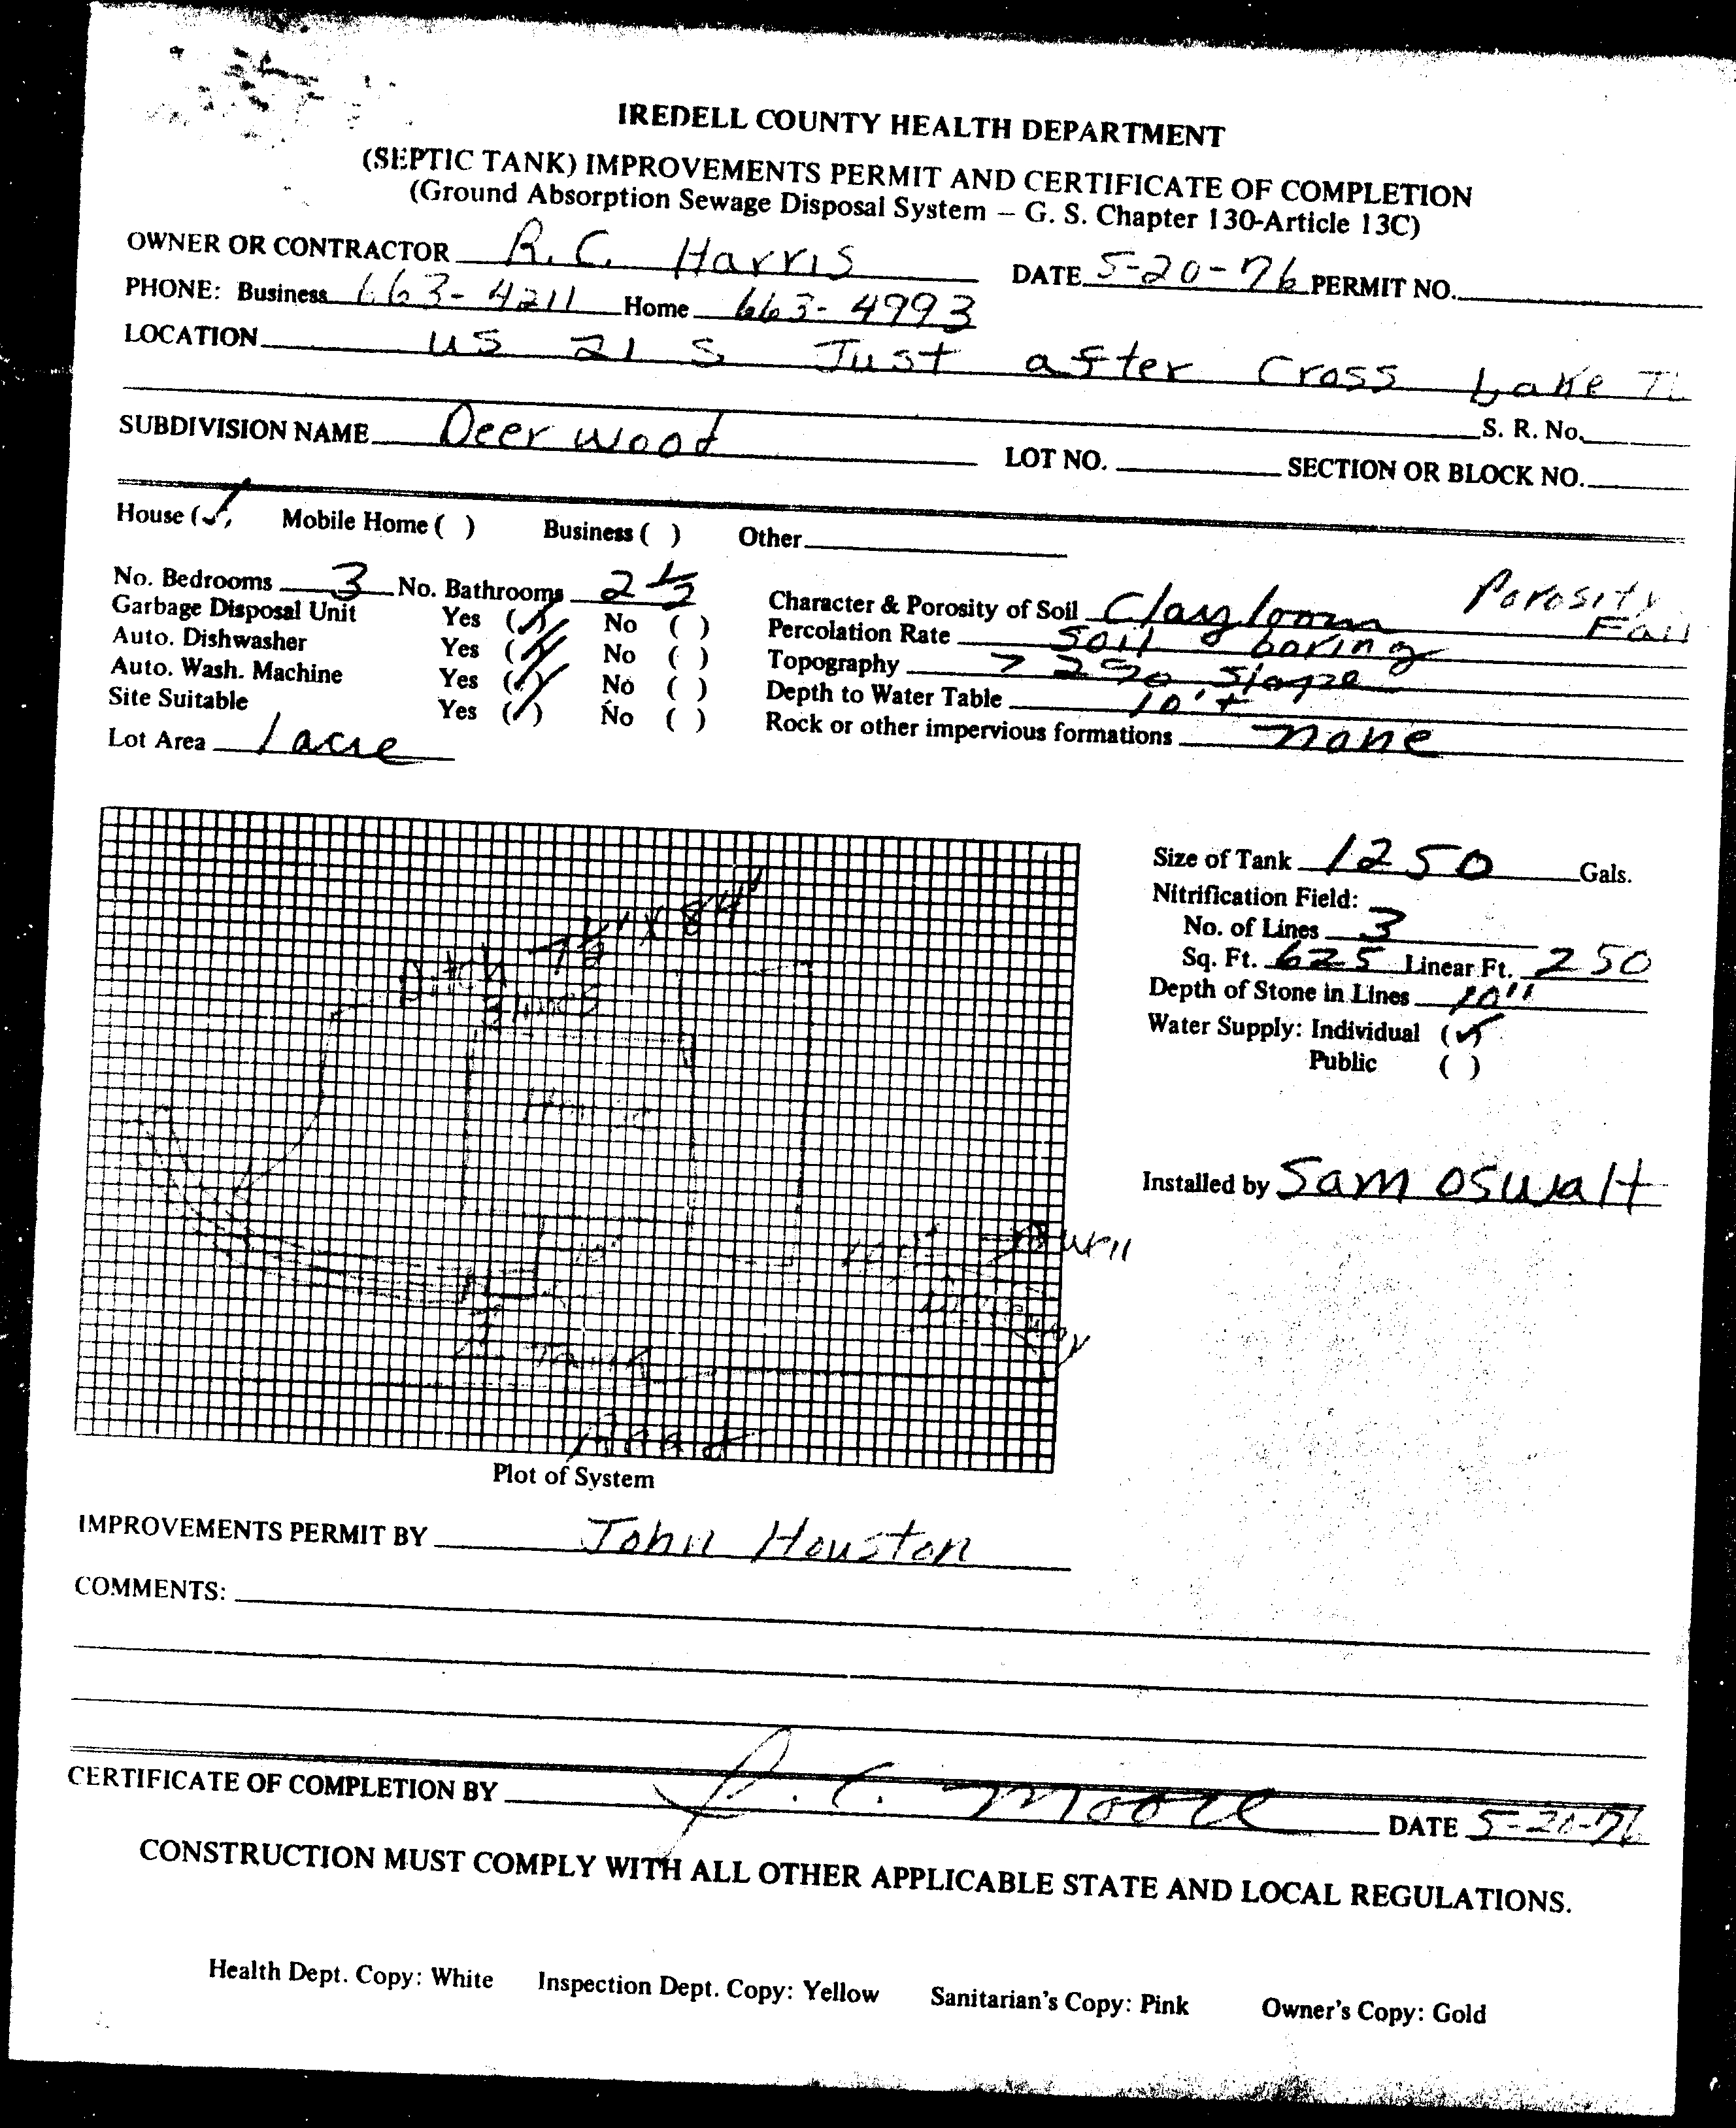 IREDELL COUNTY HEALTH DEPARTMENT
(SEPTIC TANK) IMPROVEMENTS PERMIT AND CERTIFICATE OF COMPLETION
(Ground Absorption Sewage Disposal System – G. S. Chapter 130-Article 13C)
OWNER OR CONTRACTOR R. C. Harris DATE 5-20-76 PERMIT NO.
PHONE: Business 663-4211 Home 663-4993
LOCATION US 21 S Just after Cross Lake
S. R. No.
SUBDIVISION NAME Deerwood LOT NO. SECTION OR BLOCK NO.
House (✓) Mobile Home ( ) Business ( ) Other
No. Bedrooms 3 No. Bathrooms 2 1/2
Garbage Disposal Unit Yes (✓) No ( )
Auto. Dishwasher Yes (✓) No ( )
Auto. Wash. Machine Yes (✓) No ( )
Site Suitable Yes (✓) No ( )
Lot Area 1 acre
Character & Porosity of Soil Clay loam Porosity
Percolation Rate soil boring
Topography > 2% slope
Depth to Water Table 10'+
Rock or other impervious formations none
Size of Tank 1250 Gals.
Nitrification Field:
No. of Lines 3
Sq. Ft. 625 Linear Ft. 250
Depth of Stone in Lines 10"
Water Supply: Individual (✓)
Public ( )
Installed by Sam Oswalt
3 lines
Tank
Road
Plot of System
IMPROVEMENTS PERMIT BY John Houston
COMMENTS:
CERTIFICATE OF COMPLETION BY J. C. Moore DATE 5-20-76
CONSTRUCTION MUST COMPLY WITH ALL OTHER APPLICABLE STATE AND LOCAL REGULATIONS.
Health Dept. Copy: White Inspection Dept. Copy: Yellow Sanitarian's Copy: Pink Owner's Copy: Gold